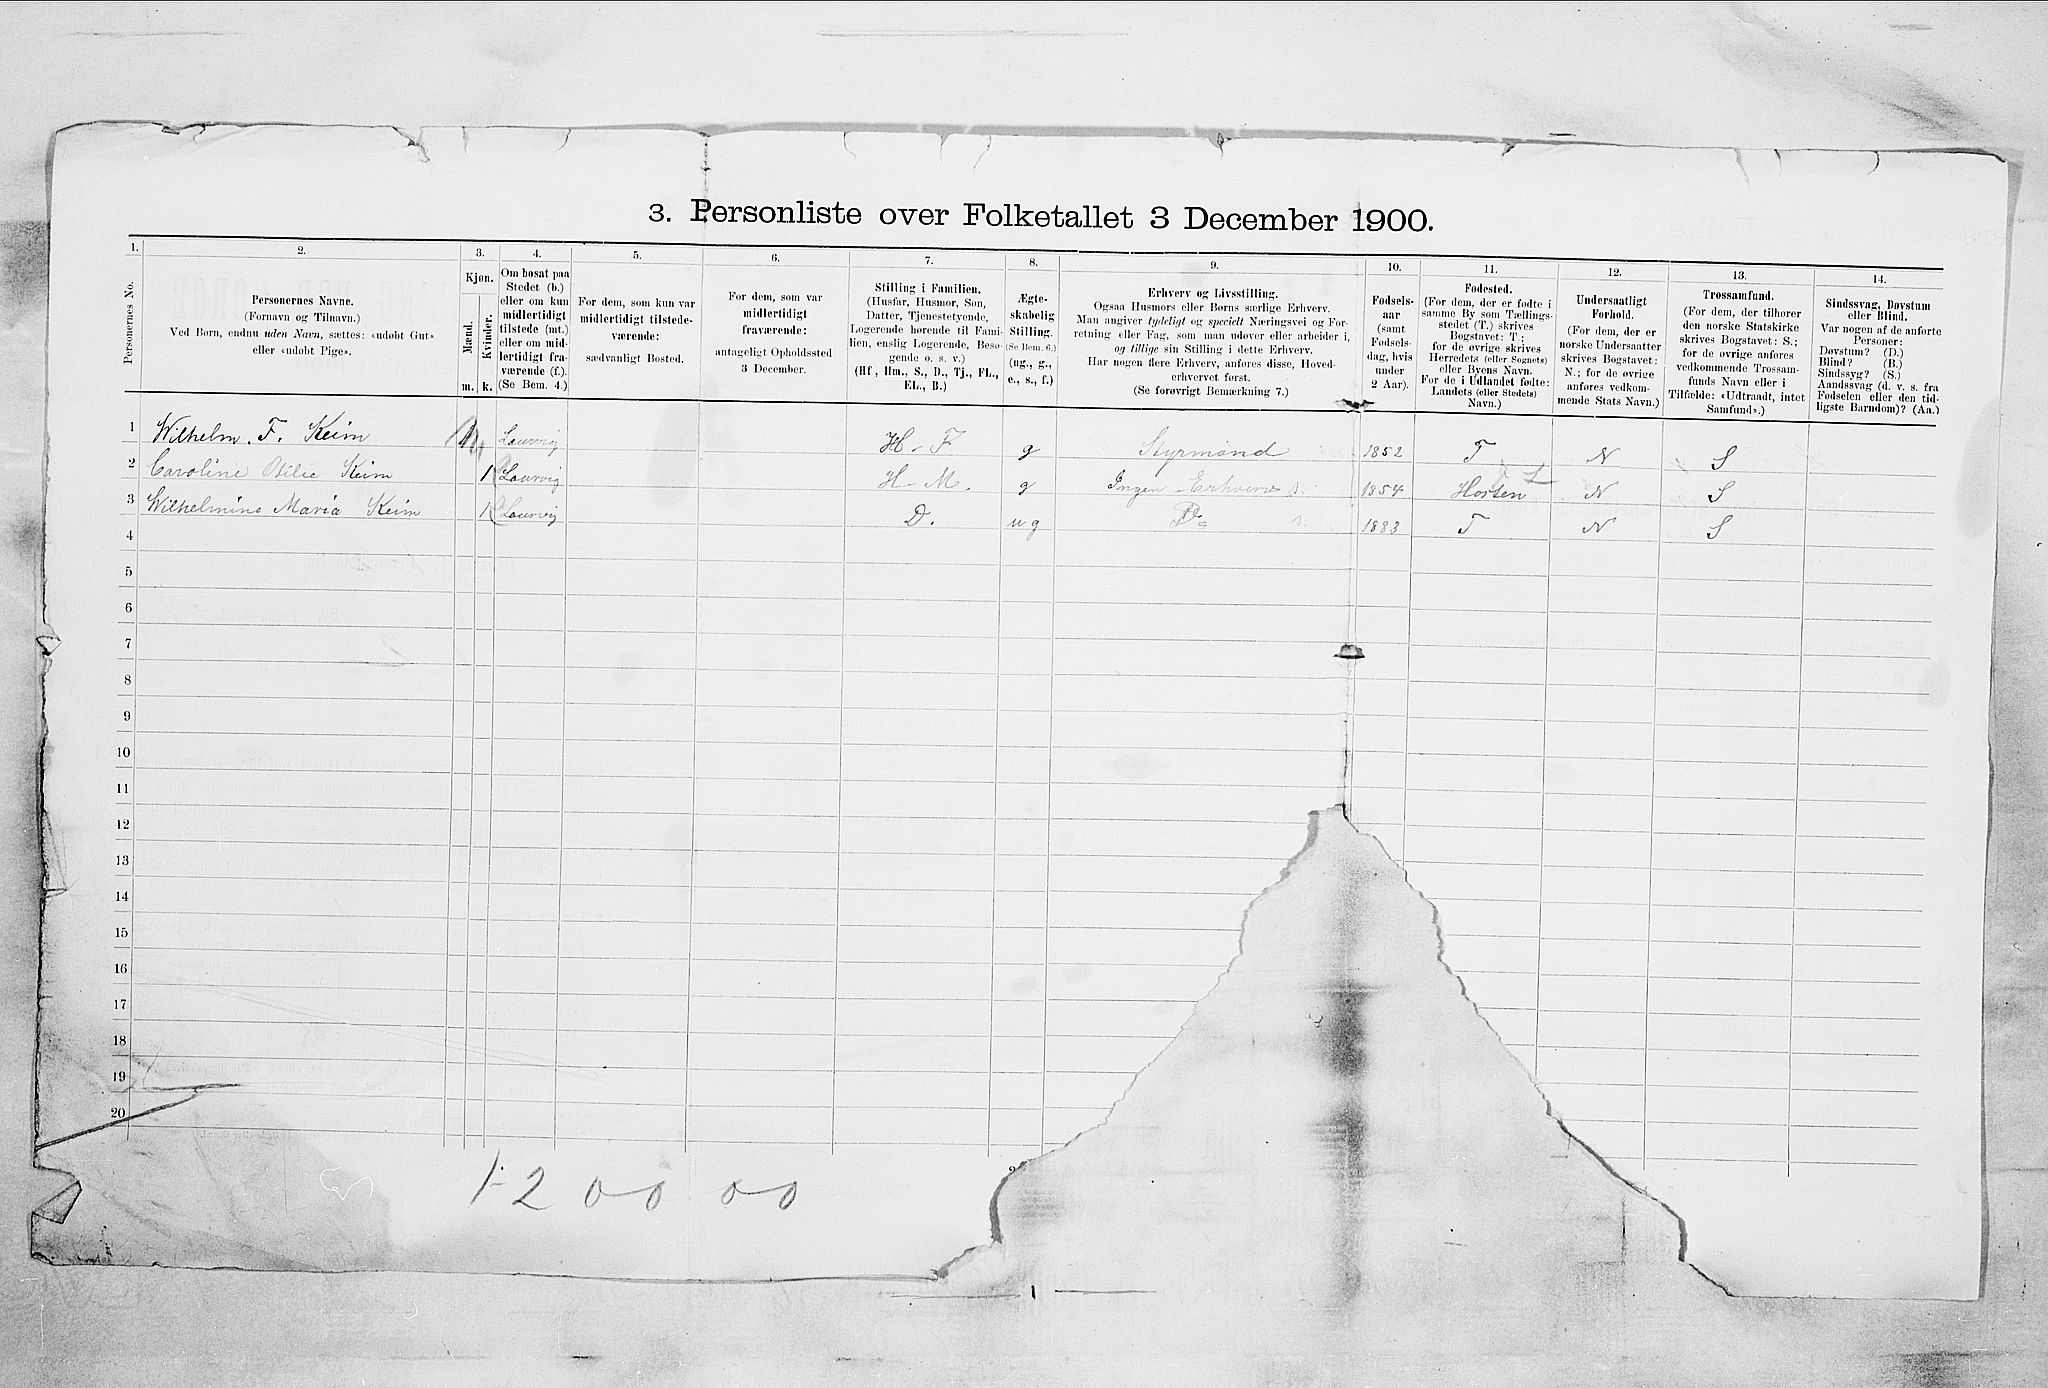 3. Personliste over Folketallet 3 December 1900.
1. 2. 3. 4. 5. 6. 7. 8. 9. 10. 11. 12. 13. 14.
Personernes No.
Personernes Navne.
(Fornavn og Tilnavn.)
Ved Børn, endnu uden Navn, sættes: «udøbt Gut»
eller «udøbt Pige».
Kjøn.
Mænd.
Kvinder.
m. k.
Om bosat paa
Stedet (b.)
eller om kun
midlertidigt
tilstede (mt.)
eller om mid-
lertidigt fra-
værende (f.).
(Se Bem. 4.)
For dem, som kun var
midlertidigt tilstede-
værende:
sædvanligt Bosted.
For dem, som var
midlertidigt
fraværende:
antageligt Opholdssted
3 December.
Stilling i Familien.
(Husfar, Husmor, Søn,
Datter, Tjenestetyende,
Logerende hørende til Fami-
lien, enslig Logerende, Besø-
gende o. s. v.)
(Hf., Hm., S., D., Tj., FL.,
EL., B.)
Ægte-
skabelig
Stilling.
(Se Bem. 6.)
(ug., g.,
e., s., f.)
Erhverv og Livsstilling.
Ogsaa Husmors eller Børns særlige Erhverv.
Man angiver tydeligt og specielt Næringsvei og For-
retning eller Fag, som man udøver eller arbeider i,
og tillige sin Stilling i dette Erhverv.
Har nogen flere Erhverv, anføres disse, Hoved-
erhvervet først.
(Se forøvrigt Bemærkning 7.)
Fødsels-
aar
(samt
Fødsels-
dag, hvis
under
2 Aar).
Fødested.
(For dem, der er fødte i
samme By som Tællings-
stedet (T.) skrives
Bogstavet: T.;
for de øvrige skrives
Herredets (eller Sognets)
eller Byens Navn.
For de i Udlandet fødte:
Landets (eller Stedets)
Navn.)
Undersaatligt
Forhold.
(For dem, der er
norske Undersaatter
skrives Bogstavet:
N.; for de øvrige
anføres vedkom-
mende Stats Navn.)
Trossamfund.
(For dem, der tilhører
den norske Statskirke
skrives Bogstavet: S.;
for de øvrige anføres
vedkommende Trossam-
funds Navn eller i
Tilfælde: «Udtraadt, intet
Samfund».)
Sindssvag, Døvstum
eller Blind.
Var nogen af de anførte
Personer:
Døvstum? (D.)
Blind? (B.)
Sindssyg? (S.)
Aandssvag (d. v. s. fra
Fødselen eller den tid-
ligste Barndom)? (Aa.)
1 Wilhelm. F. Keim 1 Laurvig H-F g Styrmand 1852 T N S
2 Caroline Otilie Keim 1 Laurvig H-M. g Ingen Erhverv 1854 Horten N S
3 Wilhelmine Maria Keim 1 Laurvig D. ug Do 1883 T N S
4
5
6
7
8
9
10
11
12
13
14
15
16
17
18
19
20
1-2 00 00